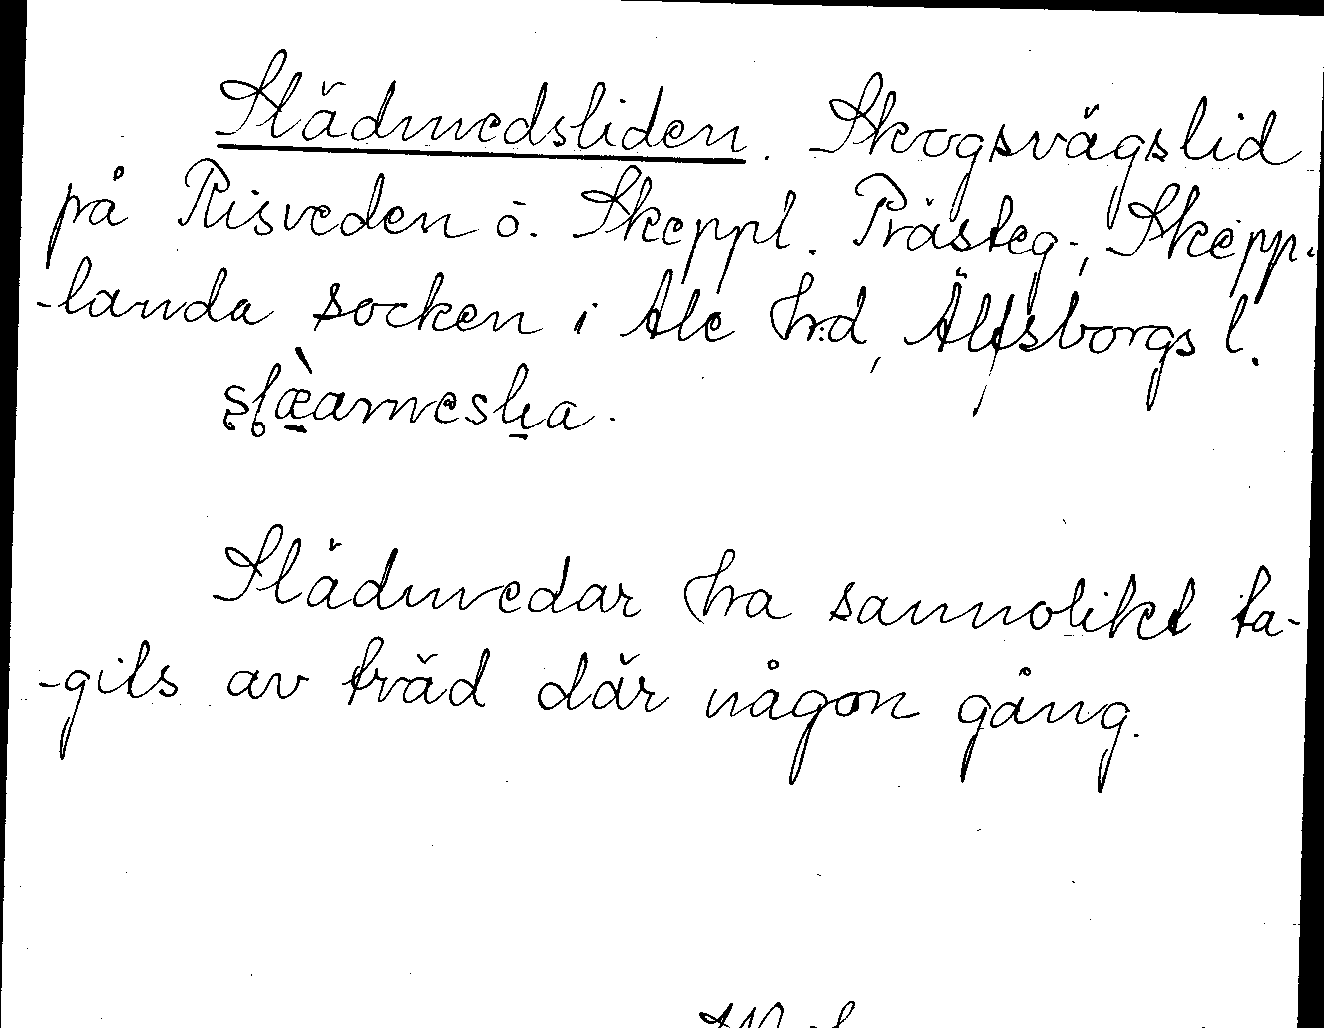 Slädmedsliden. Skogsvägslid
på Risveden ö. Skeppl. Prästeg., Skepp-
-landa socken i Ale hrd, Älfsborgs l.
Slädmedar ha sannolikt ta-
-gits av träd där någon gång.